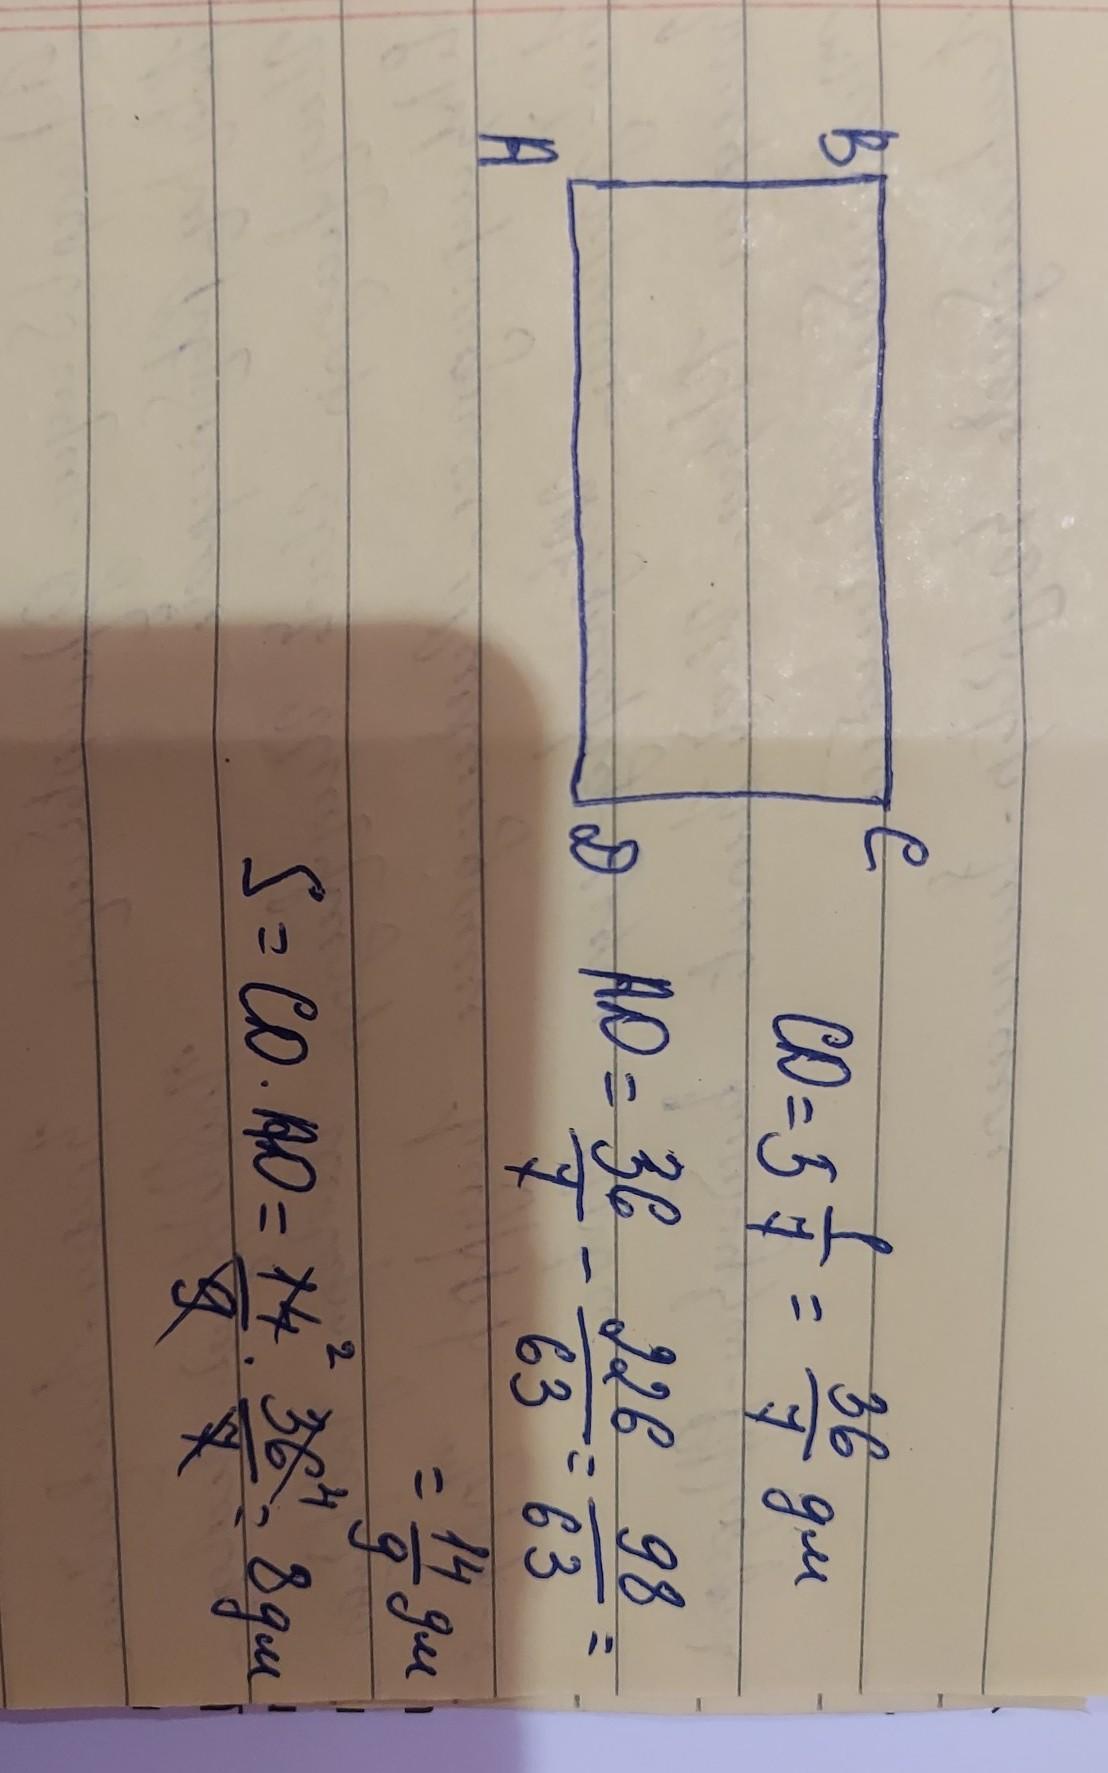 B C
A D
CD = 5 1/7 = 36/7 дм
AD = 36/7 - 226/63 = 98/63 =
= 14/9 дм
S = CD · AD = 14²/9 · 36⁴/7 = 8 дм